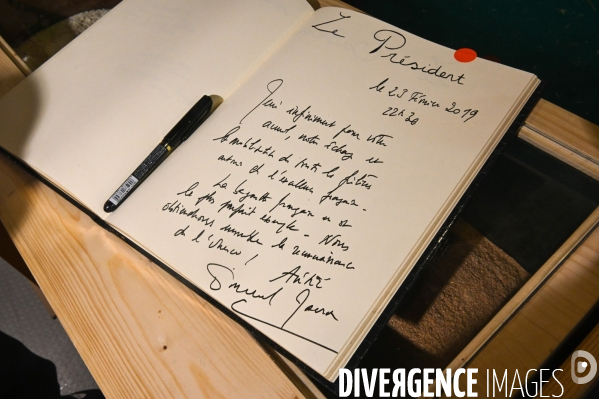 Le Président
le 23 Février 2019
22h30
Merci infiniment pour votre
accueil, notre échange et
la mobilisation de toute la filière
autour de l'excellence française.
La baguette française en est
le plus parfait exemple. Nous
obtiendrons ensemble la reconnaissance
de l'Unesco ! Amitié
DIVERGENCE IMAGES